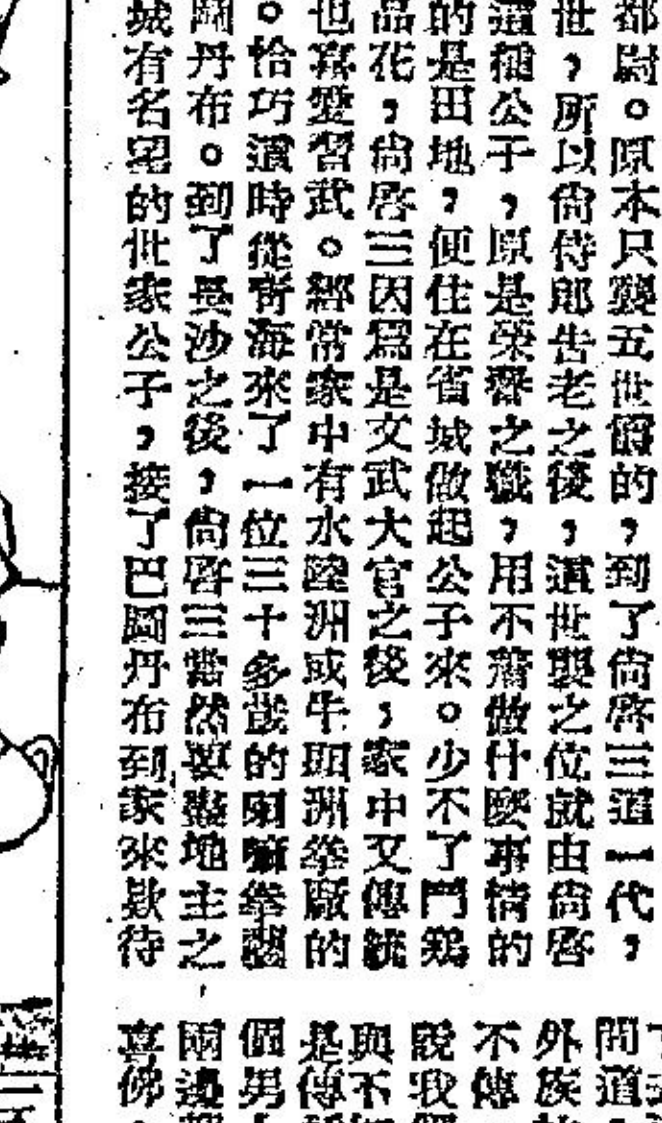 都尉。原本只襲五世爵的，到了尚啓三這一代，
世，所以尚侍郎告老之後，這世襲之位就由尚啓
這種公子，原是榮譽之職，用不着做什麼事情的
的是田地，便住在省城做起公子來。少不了鬥鷄
品花，尚啓三因爲是文武大官之後，家中又傳統
也喜愛習武。經常家中有水陸洲或牛頭洲拳廠的
。恰巧這時從青海來了一位三十多歲的喇嘛拳
圖丹布。到了長沙之後，尚啓三當然要盡地主之
城有名望的世家公子，接了巴圖丹布到家來欵待
問道
外族
不傳
說我
與不
是傳
個男
兩邊
喜佛